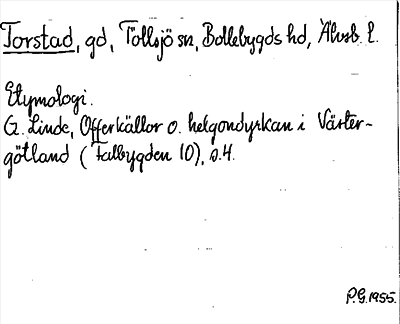 Torstad, gd, Töllsjö sn, Bollebygds hd, Älvsb. l.
Etymologi.
G. Linde, Offerkällor o. helgondyrkan i Väster-
götland (Falbygden 10), s.4.
P.G. 1955.